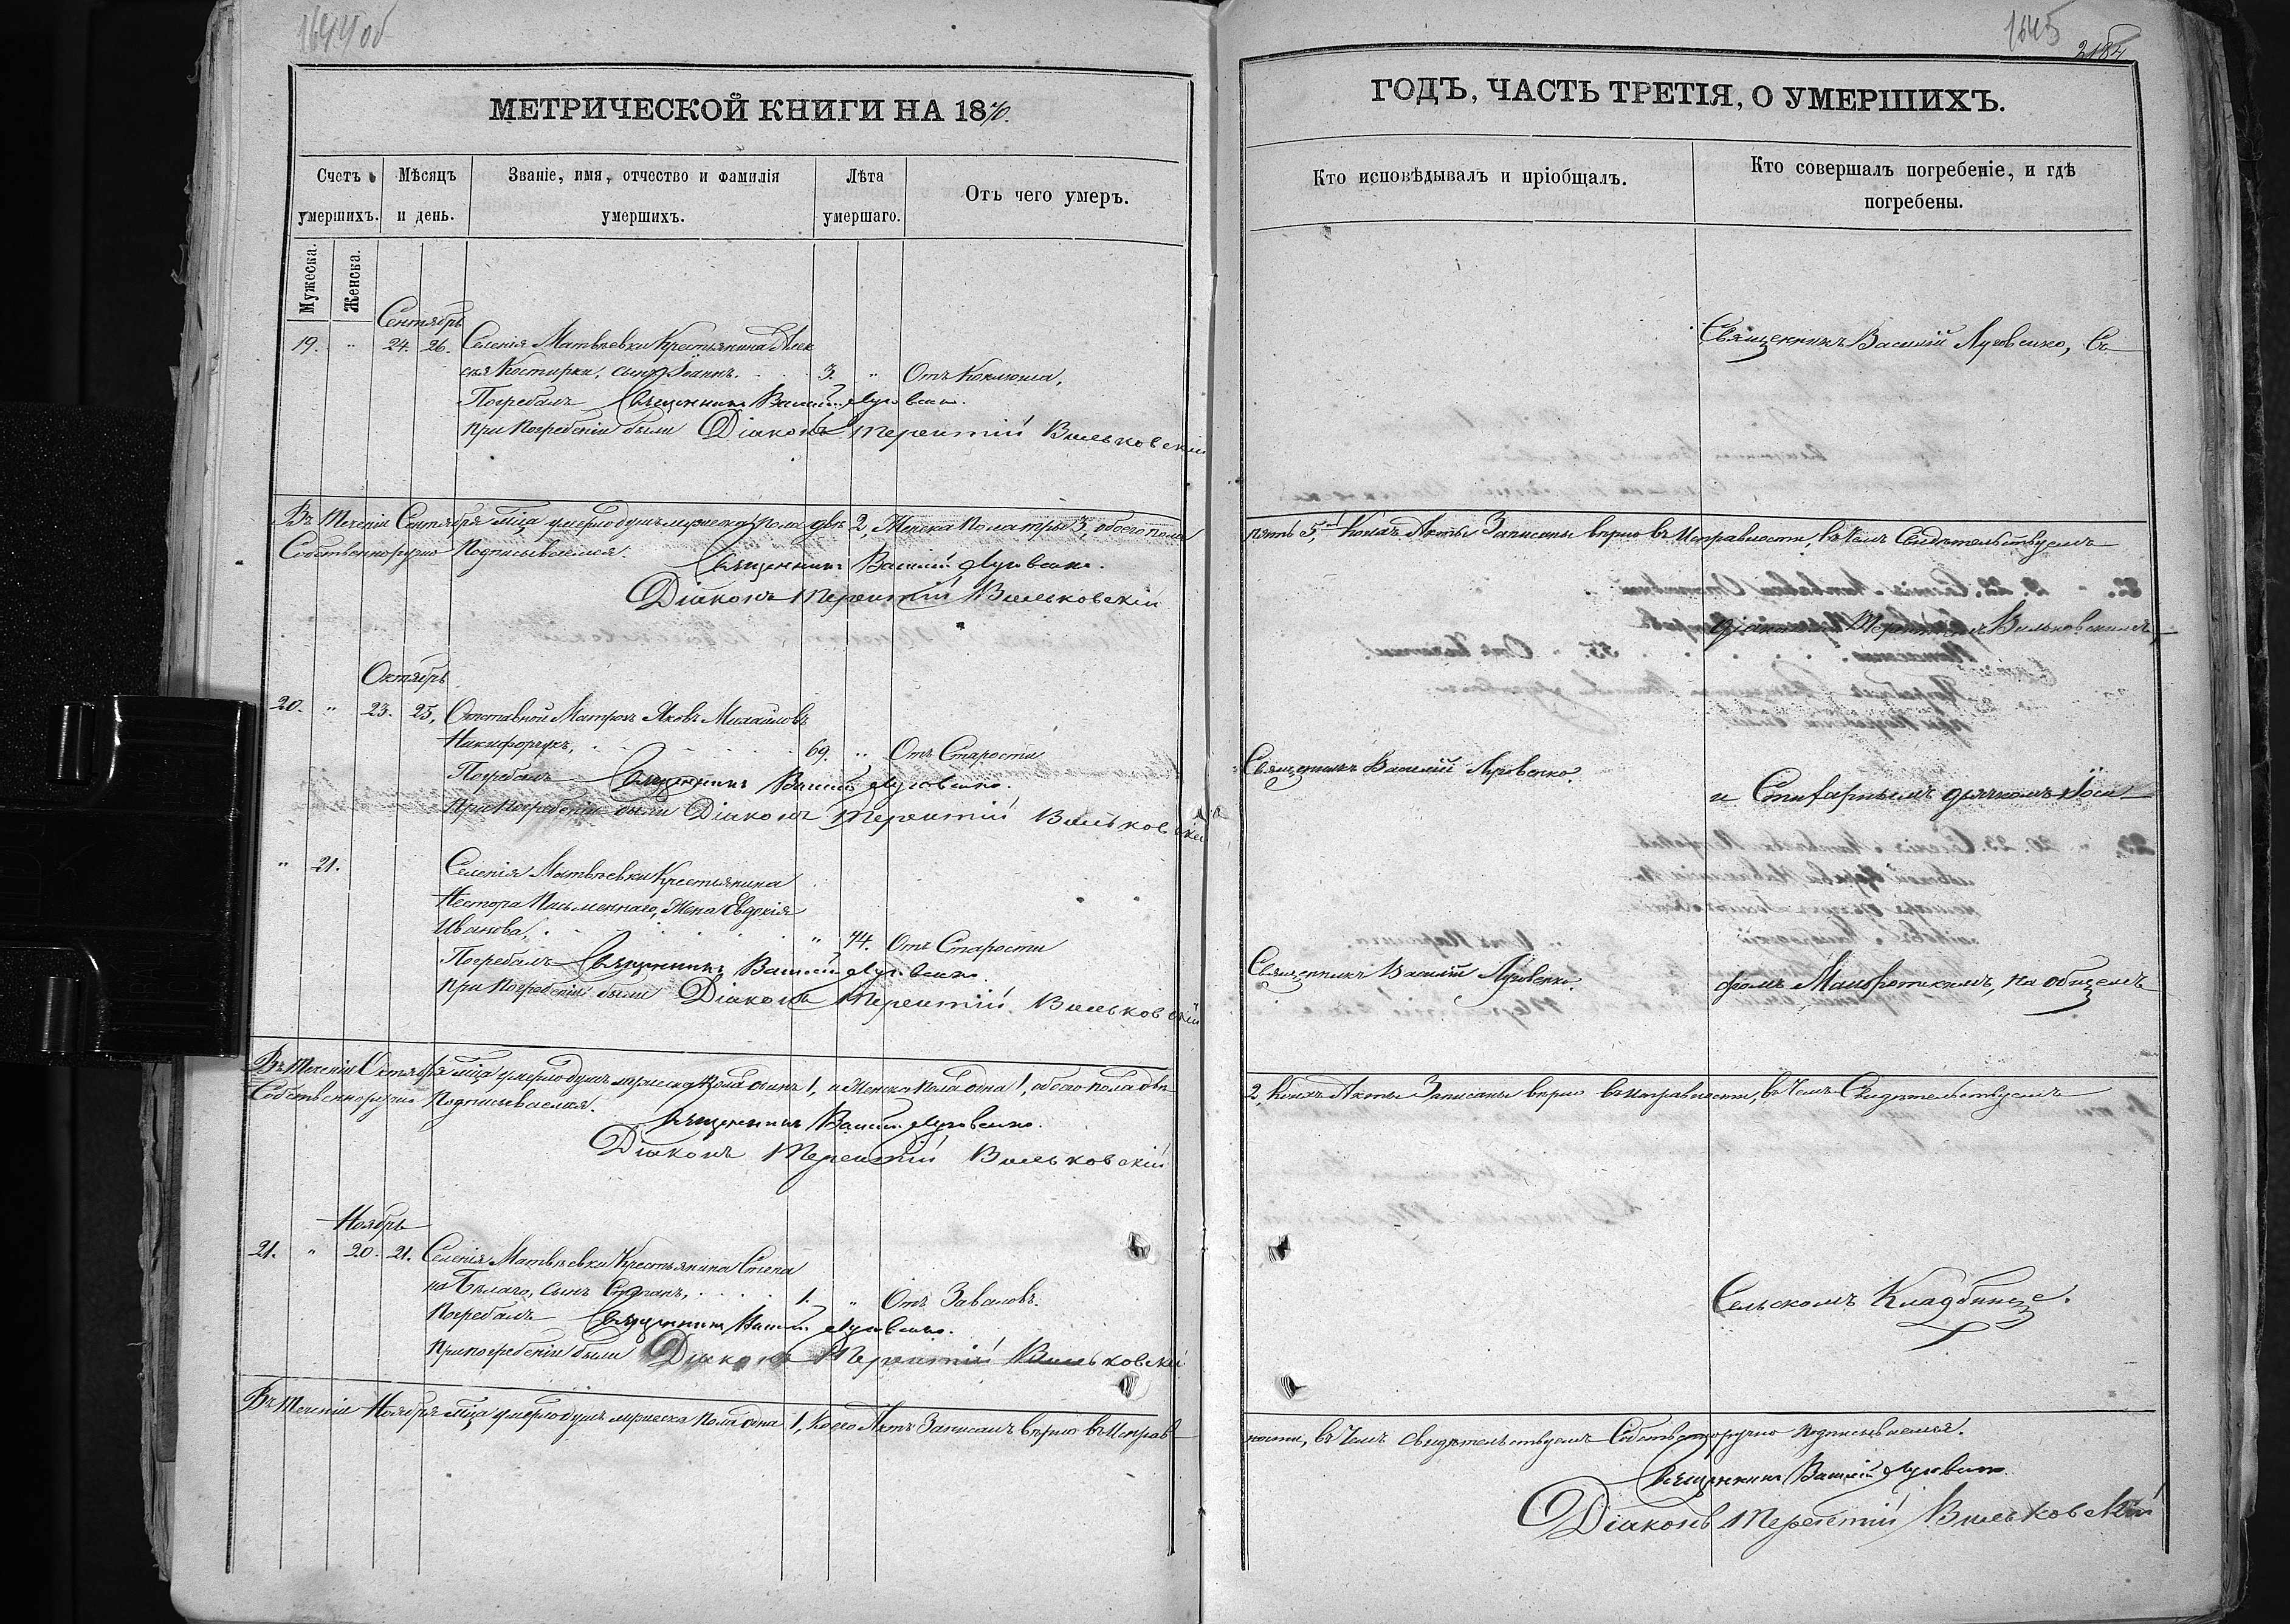 1644 об
МЕТРИЧЕСКОЙ КНИГИ НА 1870.
Счетъ умершихъ.
Мѣсяцъ и день.
Званіе, имя, отчество и фамилія умершихъ.
Лѣта умершаго.
Отъ чего умеръ.
Мужеска.
Женска.
Сентябрь
19. " 24. 26. Селенія Матвѣевки Крестьянина Алек
сѣя Костирки, сынъ Іоаннъ. 3. " Отъ Коклюша,
Погребалъ Священникъ Василій Луговенко.
При погребеніи были Діаконъ Терентій Вильковскій
Въ теченіи Сентября м͠ца умерло душъ мужеска пола двѣ 2, Женска пола три 3, обоего пола
Собственноручно Подписываемся.
Священникъ Василій Луговенко.
Діаконъ Терентій Вильковскій
Октябрь
20. " 23. 25. Отставной Матрозъ Яковъ Михайловъ
Никифорукъ, 69. " Отъ Старости
Погребалъ Священникъ Василій Луговенко.
При погребеніи были Діаконъ Терентій Вильковскій
" 21. Селенія Матвѣевки Крестьянина
Нестора Письменнаго, Жена Евдокія
Иванова, " 74. Отъ Старости
Погребалъ Священникъ Василій Луговенко
При погребеніи были Діаконъ Терентій Вильковскій
Въ теченіи Октября м͠ца умерло душъ мужеска пола одинъ 1, и Женска пола одна 1, обоего пола двѣ
Собственноручно Подписываемся.
Священникъ Василій Луговенко.
Діаконъ Терентій Вильковскій
Ноябрь
21. " 20. 21. Селенія Матвѣевки Крестьянина Степа
на Бѣлаго, сынъ Стефанъ, 1. " Отъ Заваловъ.
Погребалъ Священникъ Василій Луговенко.
При погребеніи были Діаконъ Терентій Вильковскій
Въ теченіи Ноября м͠ца умерло душъ мужеска пола одна 1, коего Актъ Записанъ вѣрно въ Исправ
1645
ГОДЪ, ЧАСТЬ ТРЕТІЯ, О УМЕРШИХЪ.
Кто исповѣдывалъ и пріобщалъ.
Кто совершалъ погребеніе, и гдѣ погребены.
Священникъ Василій Луговенко, Съ
пять 5, коихъ Акты Записаны вѣрно въ Исправности, въ чемъ Свидѣтельствуемъ
Діакономъ Терентіемъ Вильковскимъ
Священникъ Василій Луговенко.
и Стихарнымъ дячкомъ Іоси
Священникъ Василій Луговенко.
фомъ на общемъ
2, коихъ Акты Записаны вѣрно въ исправности, въ чемъ Свидѣтельствуемъ
Сельскомъ Кладбищѣ.
ности, въ чемъ свидѣтельствуемъ Собственноручно подписываемся.
Священникъ Василій Луговенко.
Діаконъ Терентій Вильковскій